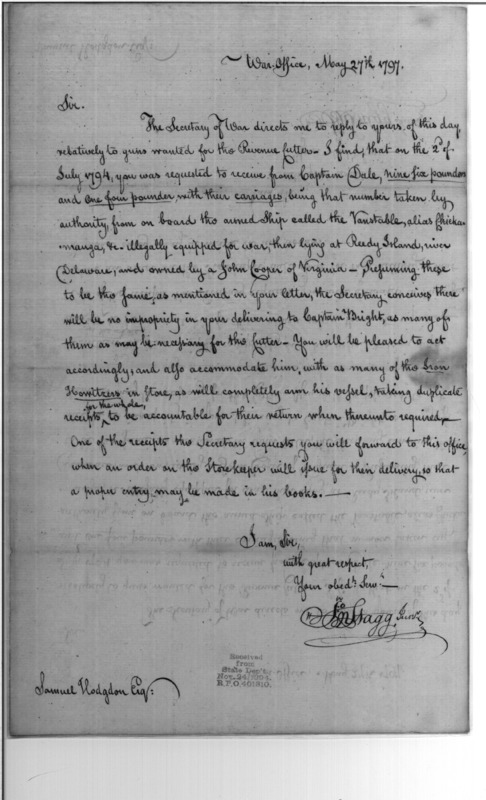 War Office, May 27th 1797.
Sir.
The Secretary of War directs me to reply to yours of this day,
relatively to guns wanted for the Revenue Cutters - I find, that on the 2d of
July 1794, you was requested to receive from Captain Dale, nine six pounders
and one four pounder with their carriages, being that number taken by
authority, from on board the armed Ship called the Vanstable, alias Chicka-
-manga, &c. illegally equipped for war, then lying at Reedy Island, river
Delaware, and owned by a John Cooper of Virginia - Presuming these
to be the same, as mentioned in your letter, the Secretary conceives there
will be no impropriety in your delivering to Captain Bright, as many of
them as may be necessary for the Cutter - You will be pleased to act
accordingly; and also accommodate him, with as many of the Iron
Howitzers in Store, as will completely arm his vessel, taking duplicate
for the whole,
receipts, to be accountable for their return when thereunto required -
One of the receipts the Secretary requests you will forward to this office,
when an order on the Storekeeper will issue for their delivery, so that
a proper entry may be made in his books. -
I am, Sir,
with great respect,
Your obedt. Servt.
Jno Stagg, Junr.
Received
from
State Dep't.
Nov. 24/1904.
R.P.O. 461910.
Samuel Hodgdon Esqr: